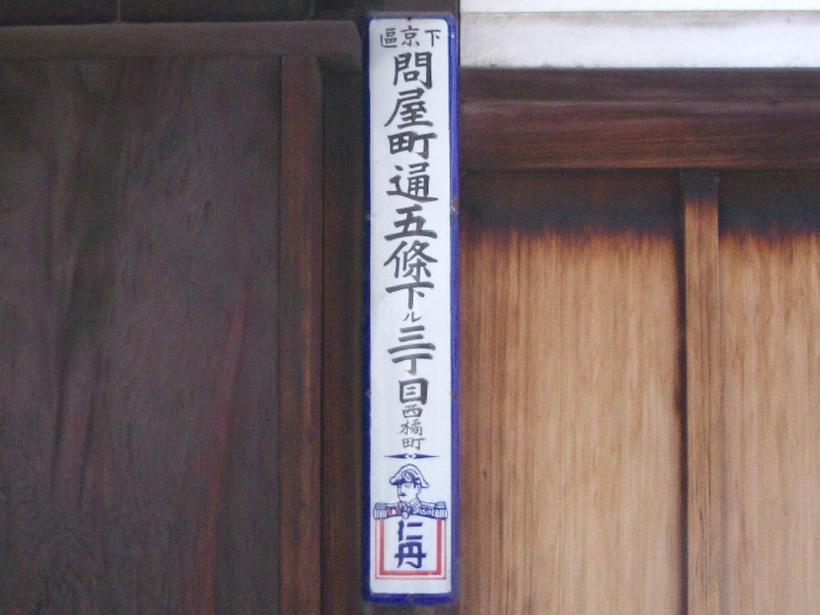 下京區
問屋町通五條下ル三丁目西橘町
仁丹